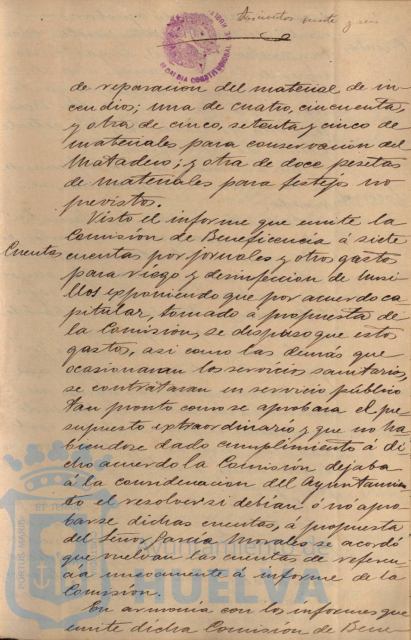 doscientos veinte y seis
ALCALDIA CONSTITUCIONAL DE HUELVA
de reparacion del material de in-
cendios; una de cuatro, cincuenta,
y otra de cinco, setenta y cinco de
materiales para conservacion del
Matadero; y otra de doce pesetas
de materiales para festejos no
previstos.
Visto el informe que emite la
Comisión de Beneficencia á siete
Cuentas
cuentas por jornales y otros gastos
para riego y desinfeccion de husi-
llos exponiendo que por acuerdo ca-
pitular, tomado á propuesta de
la Comision, se dispuso que estos
gastos, asi como las demás que
ocasionaran los servicios sanitarios,
se contrataran en servicio público
tan pronto como se aprobara el pre-
supuesto extraordinario y que no ha-
biendose dado cumplimiento á di-
cho acuerdo la Comision dejaba
á la consideracion del Ayuntamien-
to el resolver si debian ó nó apro-
barse dichas cuentas, á propuesta
del Señor Garcia Morales se acordó
que vuelvan las cuentas de referen-
cia nuevamente á informe de la
Comision.
En armonia con los informes que
emite dicha Comision de Bene-
PORTUS MARIS
ET TERRE
Ayuntamiento de
HUELVA